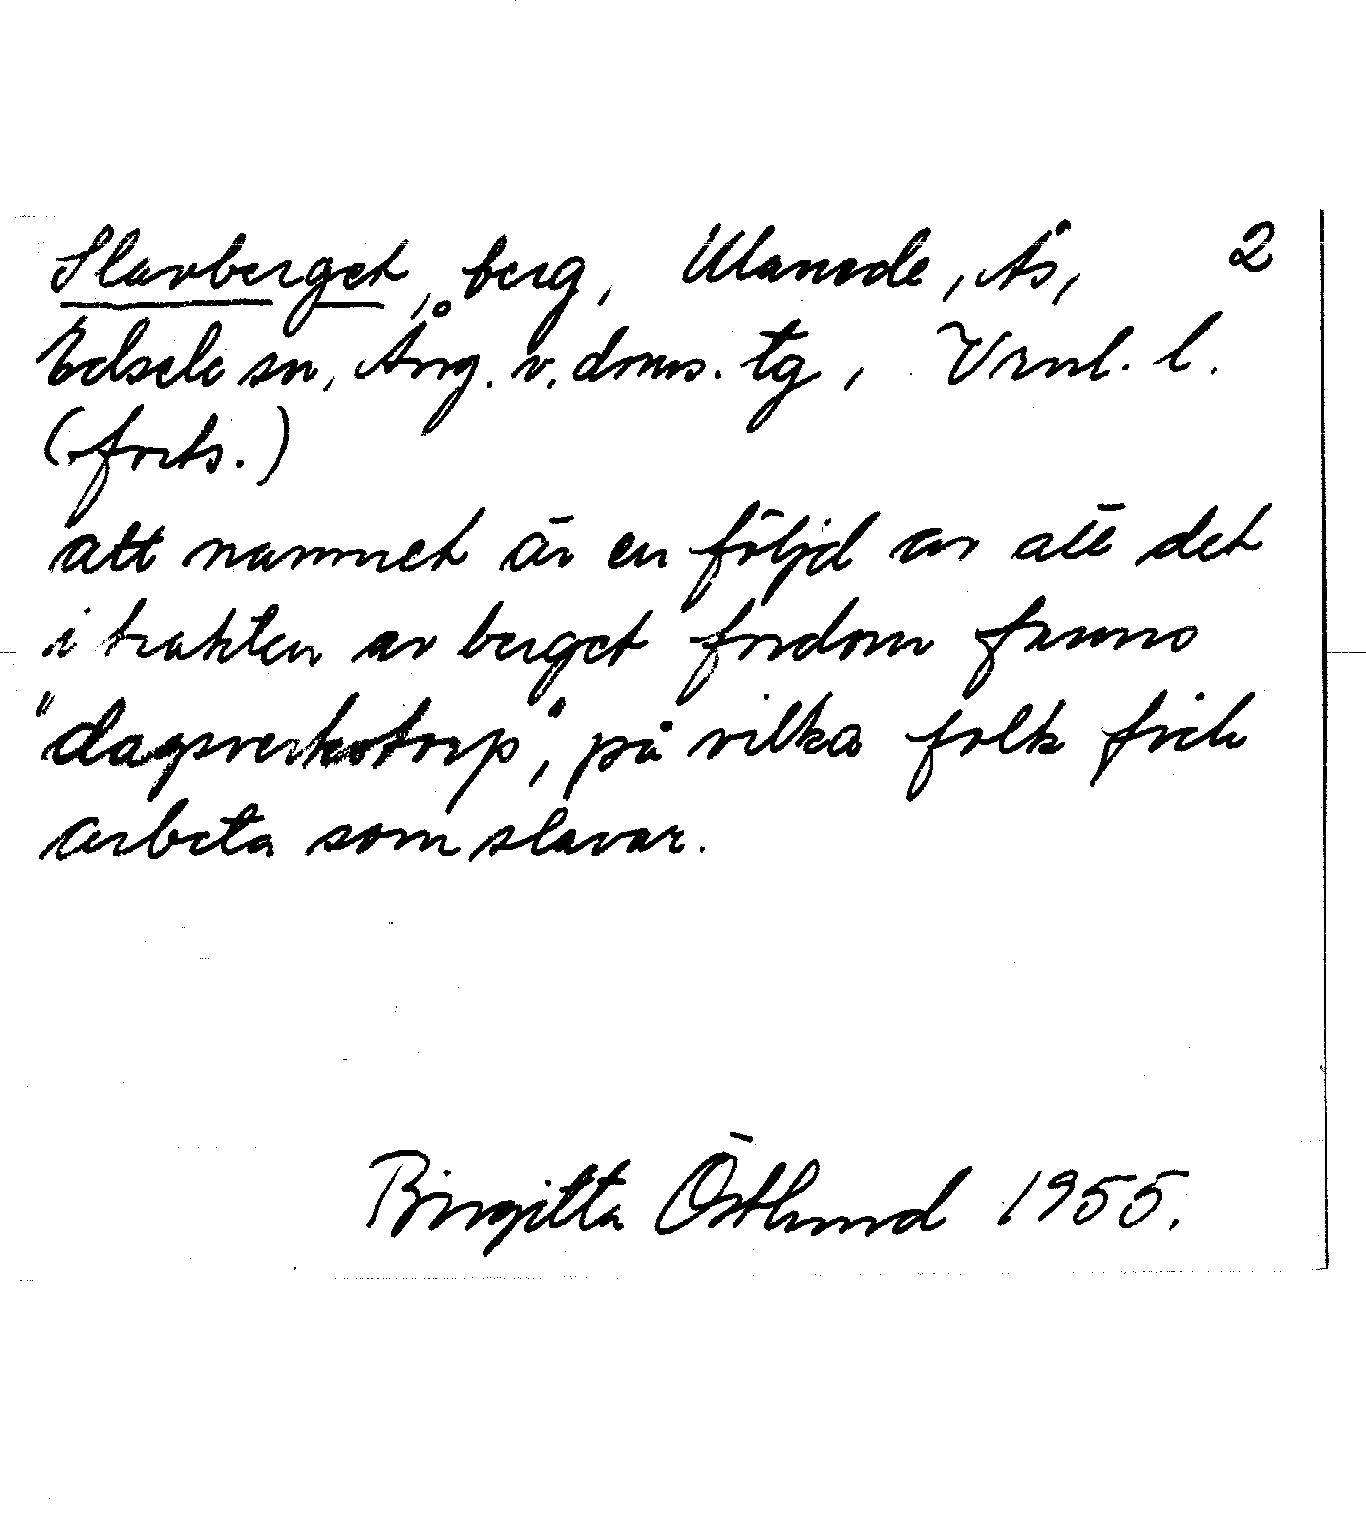 Slavberget, berg, Ulanede, Ås, 2
Edsele sn, Ång. v. doms. tg, Vrnl. l.
(forts.)
att namnet är en följd av att det
i trakten av berget fordom funnos
"dagsverkstorp", på vilka folk fick
arbeta som slavar.
Birgitta Östlund 1955.